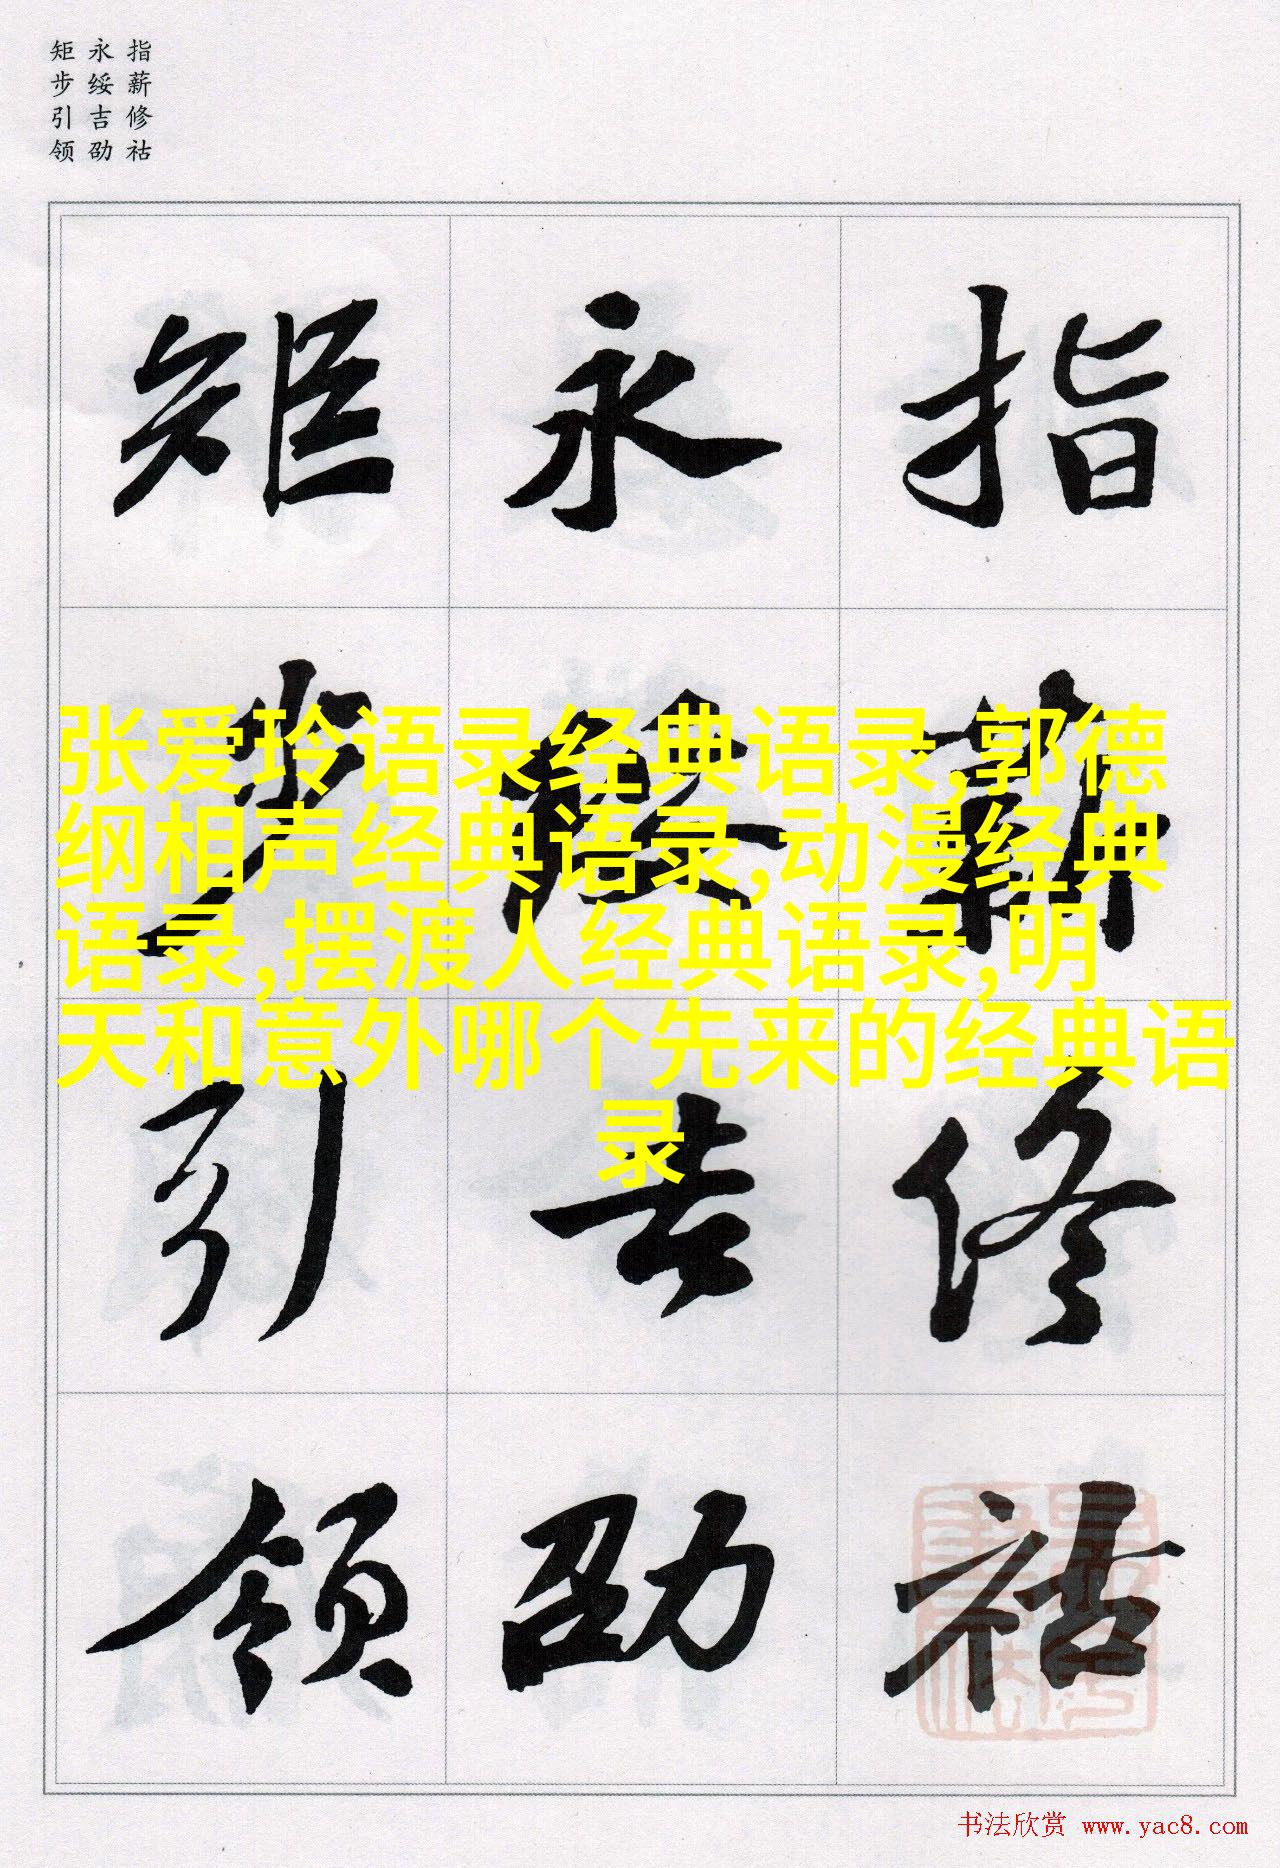 指薪修祜
永绥吉劭
矩步引领
指薪修祜
永绥吉劭
矩步引领
张爱玲语录经典语录,郭德
纲相声经典语录,动漫经典
语录,摆渡人经典语录,明
天和意外哪个先来的经典语
录
书法欣赏 www.yac8.com